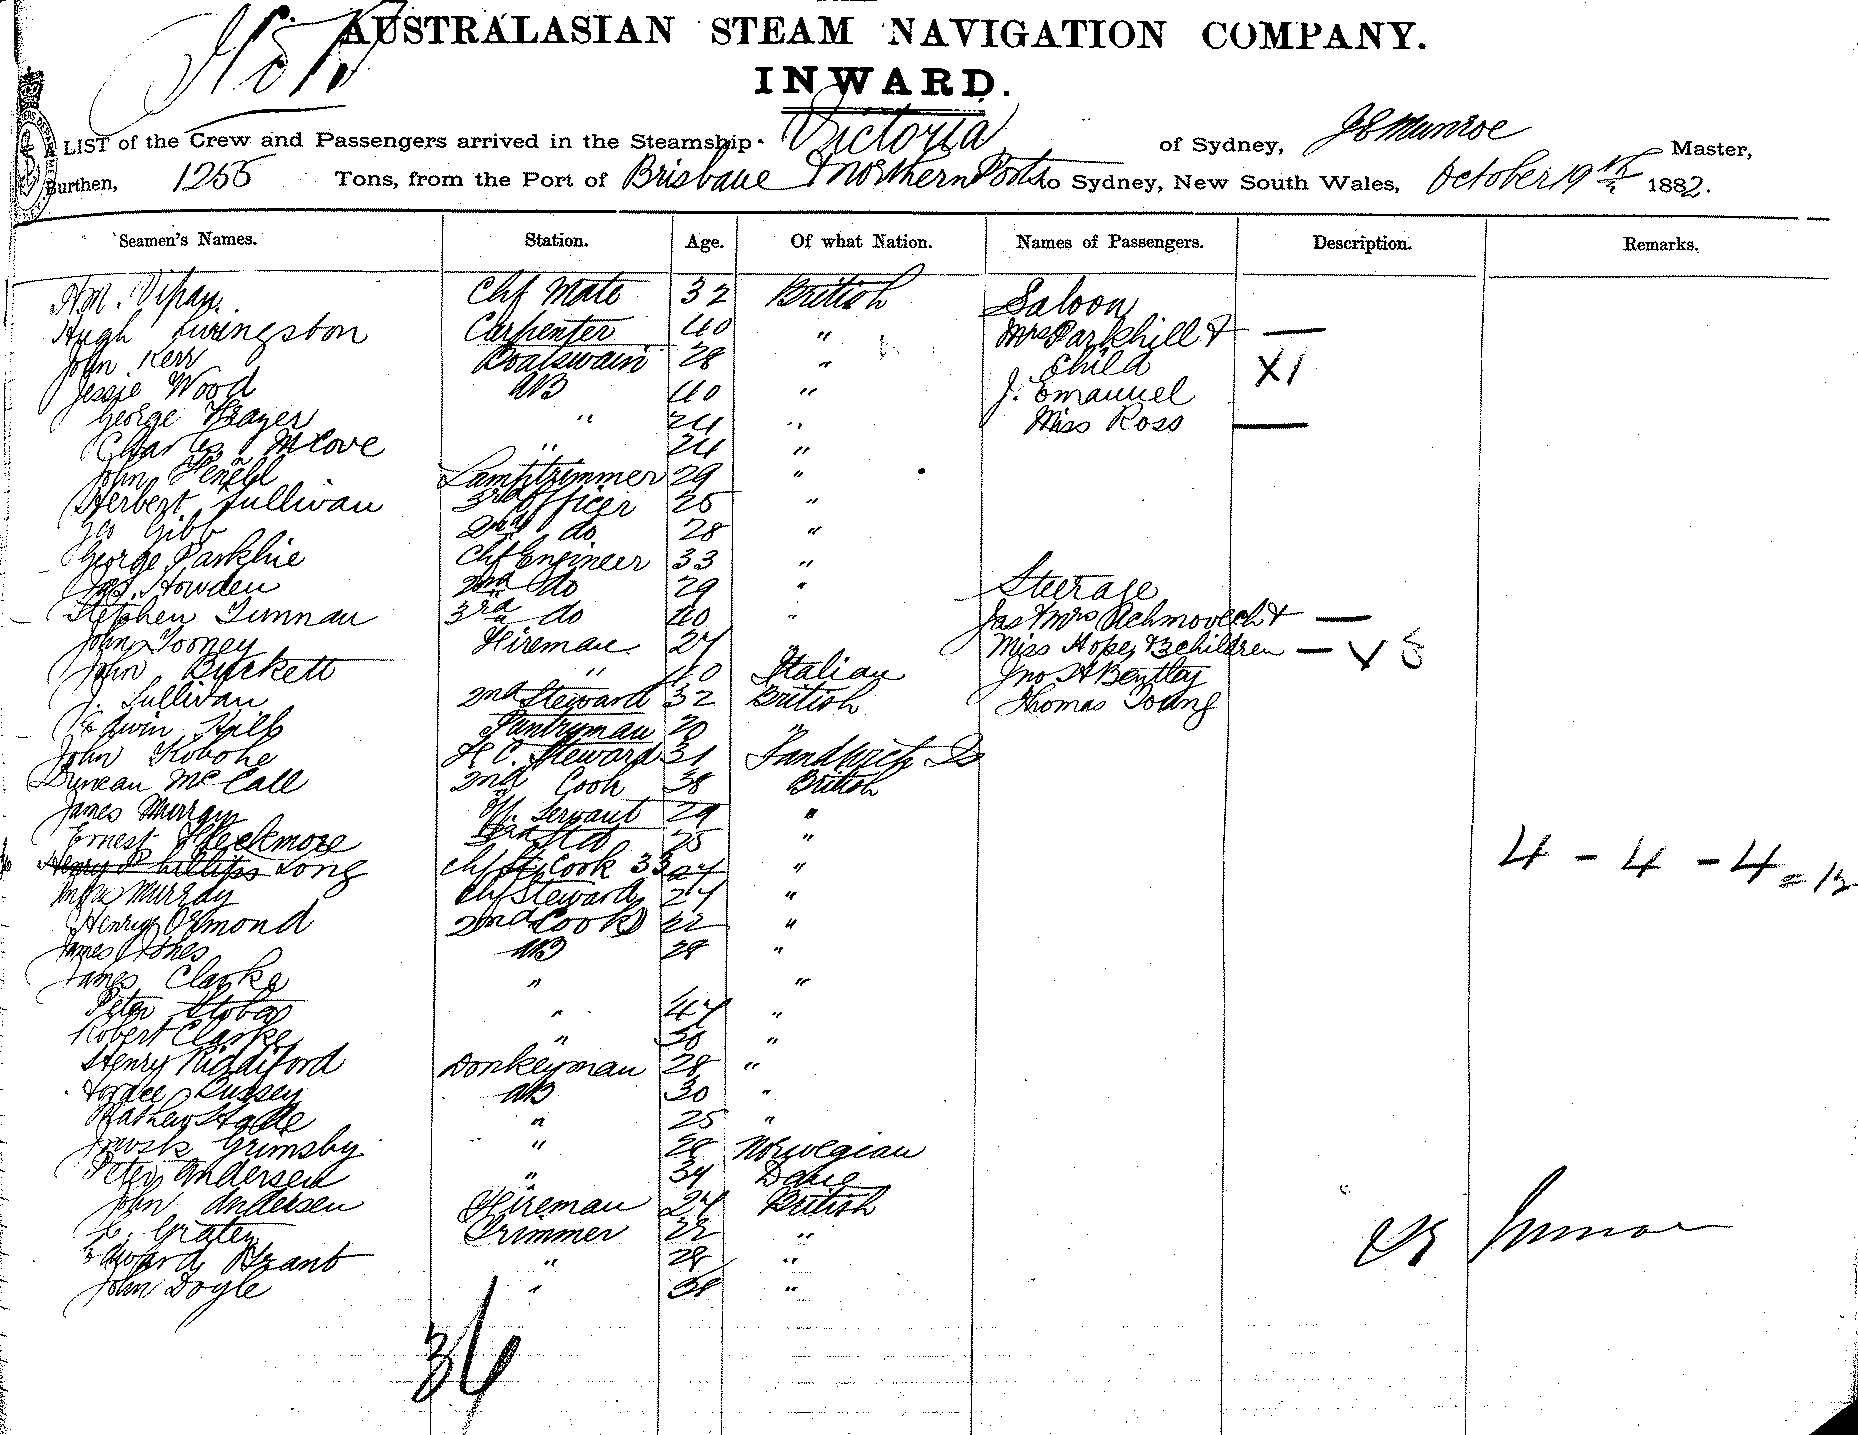 AUSTRALASIAN STEAM NAVIGATION COMPANY.
INWARD.
LIST of the Crew and Passengers arrived in the Steamship Victoria of Sydney, Munroe Master,
Burthen, 1255 Tons, from the Port of Brisbane & Northern Ports to Sydney, New South Wales, October 19th 1882.
Seamen's Names. Station. Age. Of what Nation. Names of Passengers. Description. Remarks.
Chf Mate 32 British Saloon
Hugh Livingston Carpenter 40 " Mrs Parkhill & —
John Kerr Boatswain 28 " Child
Jessie Wood AB 40 " J. Emanuel X1
George " 24 " Miss Ross —
Charles " 24 "
John Lamptrimmer 29 "
Herbert Sullivan 3rd Officer 25 "
Gibb 2nd do 28 "
George Chf Engineer 33 "
Jas. Howden 2nd do 29 " Steerage
Stephen 3rd do 40 " Jas & Mrs & —
John Tooney Fireman 27 " Miss Hope & 3 children —
John Burkett " 40 Italian Jno H Bentley
J. Sullivan 2nd Steward 32 British Thomas Young
Edwin Hills Pantryman 20 "
John Kobohe F C. Steward 31 Sandwich Is
Duncan McCall 2nd Cook 38 British
James Murray Servant 29 "
Ernest 25 "
Henry Phillips Long Chf Cook 33 "
Murray Chf Steward 27 "
Henry Ormond 2nd Cook 22 "
James Jones AB 29 "
James Clarke " "
Peter " 47 "
Robert Clarke " 36 "
Henry Riddiford Donkeyman 28 "
AB 30 "
" 25 "
Grimsby " 28 Norwegian
Peter Andersen " 34 Dane
John Andersen Fireman 24 British
Trimmer 22 "
Edward " 28 "
John Doyle " 38 "
4 - 4 - 4 = 12
36